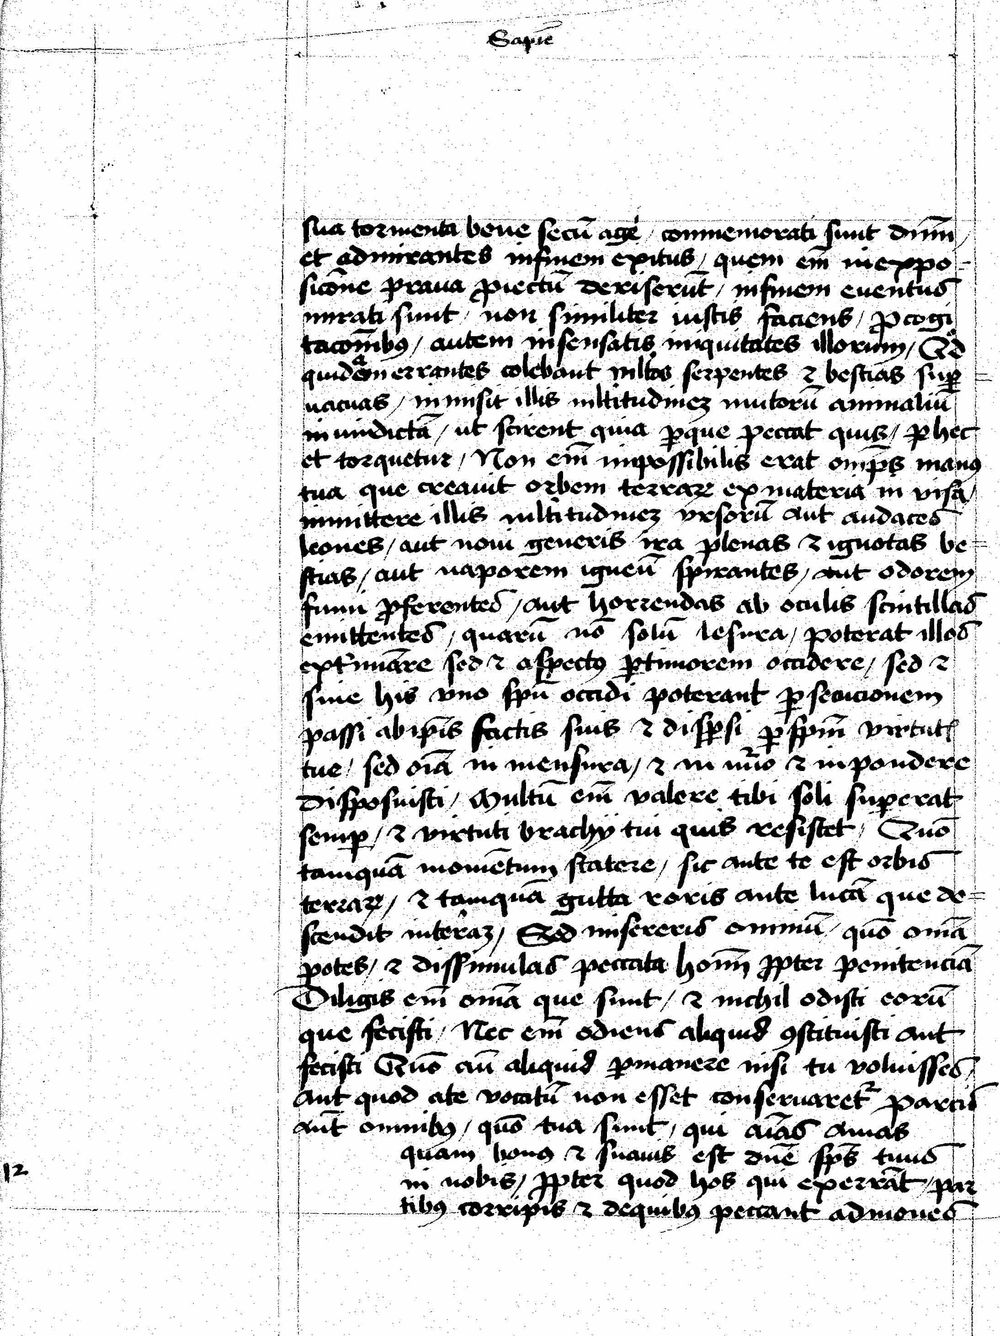 Sapiē
sua tormenta bene secū age / commemorati sunt dn̄m /
et admirantes infinem exitus / quem em̄ inexpo-
sicōne praua proiectū deriserūt / infinem euentus
mirati sunt / non similiter iustis faciens / p cogi
tacōnibꝰ / autem insensatis iniquitates illorum / Qd̊
quidam errantes colebant mltos serpentes ⁊ bestias sup
uacuas / inmisit illis mltitudinez mutorū animaliū
in uindictā / ut scirent quia p que peccat quis / p hec
et torquetur / Non em̄ impossibilis erat omps manꝰ
tua que creauit orbem terraꝝ ex materia in visa /
inmittere illis mltitudinez vrsorū aut audaces
leones / aut noui generis ira plenas ⁊ ignotas be=
stias / aut uaporem igneū spirantes / aut odorem
fumi pferentes / aut horrendas ab oculis scintillas
emittentes / quarū nō solū lesura / poterat illos
extīnare sed ⁊ aspectꝰ p timorem occidere / sed ⁊
sine his vno spū occidi poterant p secucionem
passi ab ip̄is factis suis ⁊ dispsi p spm̄ virtutꝭ
tue / sed oīa in mensura / ⁊ in nūo ⁊ in pondere
disposuisti / Multū em̄ valere tibi soli superat
semp / ⁊ virtuti brachij tui quis resistet / Quō
tamquā momētum statere / sic ante te est orbis
terraꝝ / ⁊ tamquā gutta roris ante lucā que de=
scendit in terāz / Sed misereris omniū / quō omā
potes / ⁊ dissimulas peccata hoīm ppter penitenciā
Diligis em̄ omā que sunt / ⁊ nichil odisti eorū
que fecisti / Nec em̄ odiens aliquid ꝯstituisti aut
fecisti Quō aū aliquid pmanere nisi tu voluisses /
aut quod a te vocatū non esset conseruaretʳ parcis
aūt omnibꝰ / quō tua sunt / qui aīas amas
quam bonꝰ ⁊ suauis est dn̄e sps tuus
in nobis / ppter quod hos qui exerrāt / par
12
tibꝰ corripis ⁊ de quibꝰ peccant admones